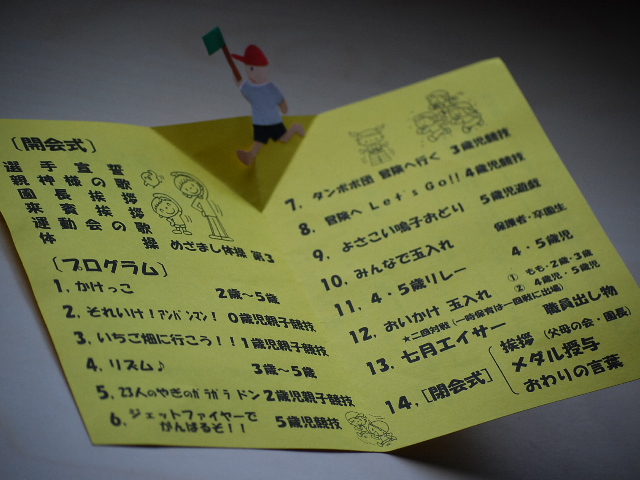 〔開会式〕
選手宣誓
親神様の歌
園長挨拶
来賓挨拶
運動会の歌
体操 めざまし体操 第3
〔プログラム〕
1. かけっこ 2歳〜5歳
2. それいけ!アンパンマン! 0歳児親子競技
3. いちご畑に行こう!! 1歳児親子競技
4. リズム♪ 3歳〜5歳
5. 23人のやぎのガラガラドン 2歳児親子競技
6. ジェットファイヤーで
がんばるぞ!! 5歳児競技
7. タンポポ団 冒険へ行く 3歳児競技
8. 冒険へ Let's Go!! 4歳児競技
9. よさこい鳴子おどり 5歳児遊戯
10. みんなで玉入れ 保護者・卒園生
11. 4・5歳リレー 4・5歳児
12. おいかけ 玉入れ ① もも・2歳・3歳
② 4歳児・5歳児
★二回対戦(一時保育は一回戦に出場)
13. 七月エイサー 職員出し物
14. [閉会式] 挨拶 (父母の会・園長)
メダル授与
おわりの言葉